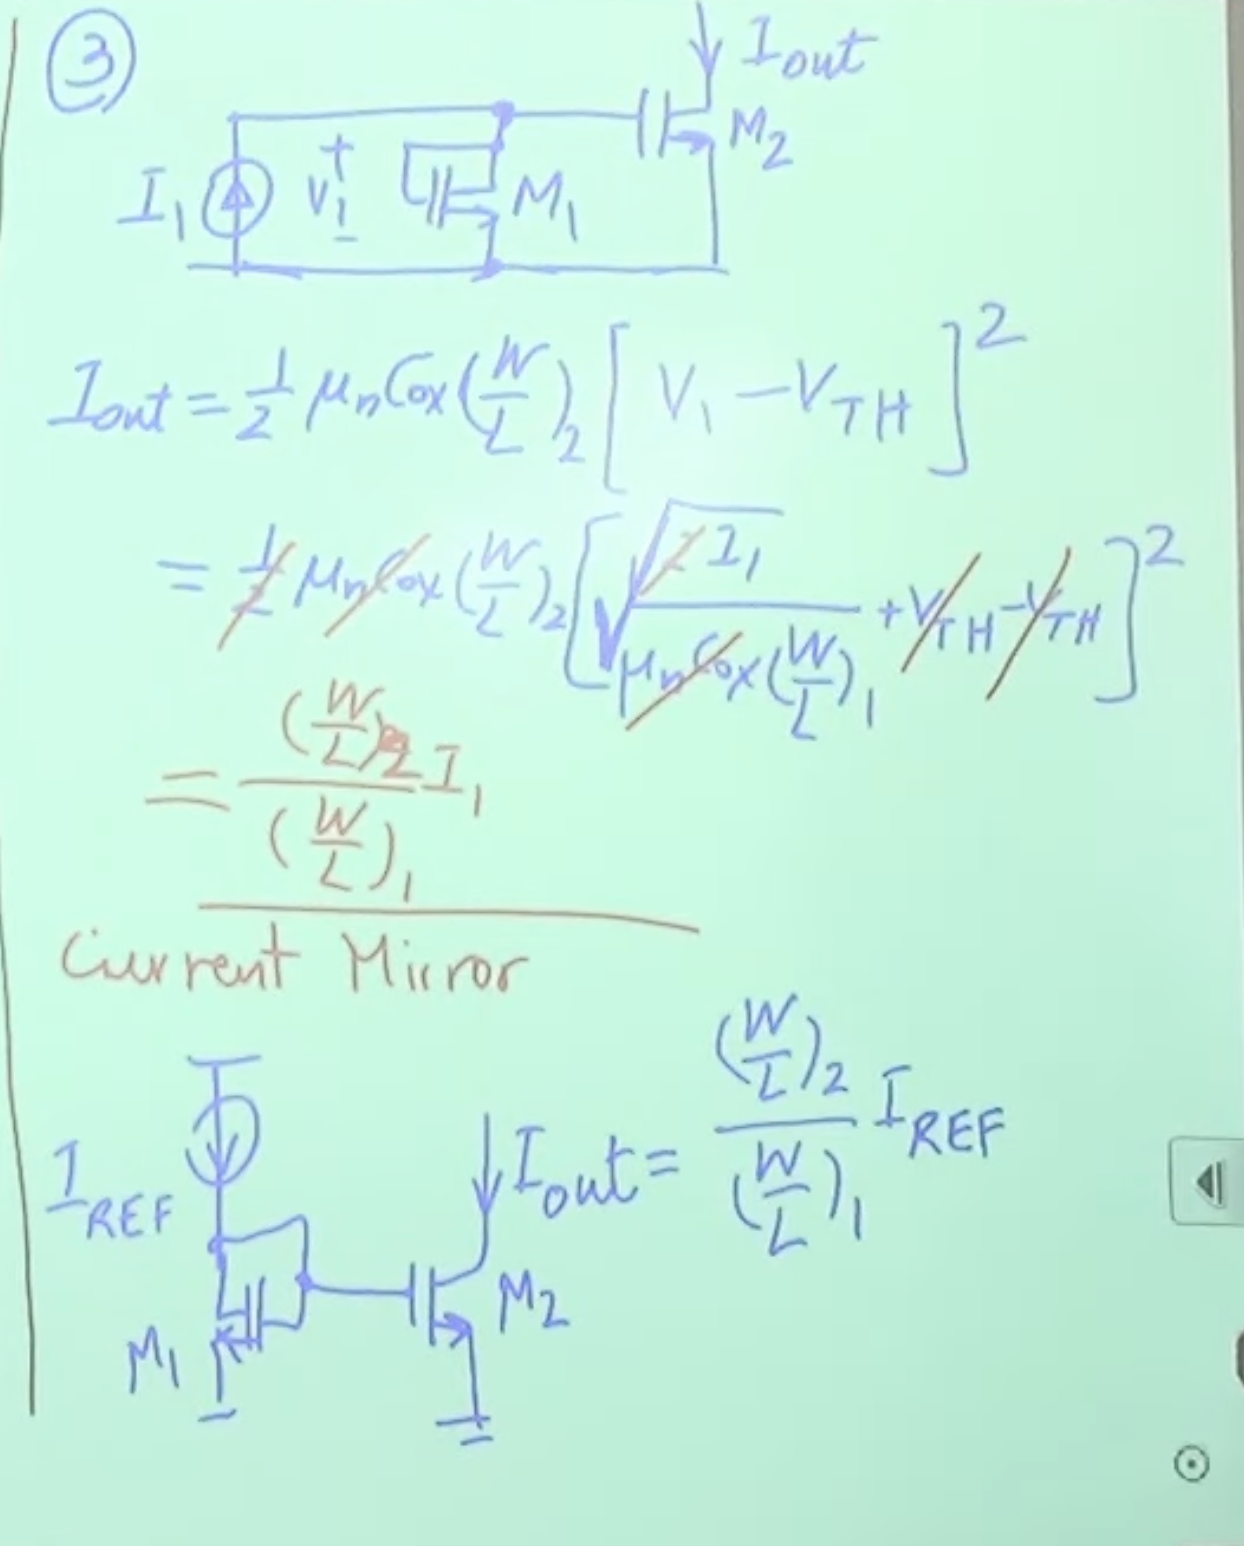 ③
I out
I₁ + V₁ - M₁ M₂
I out = 1/2 μn Cox (W/L)₂ [V₁ - V TH]²
= 1/2 μn Cox (W/L)₂ [√(2 I₁ / μn Cox (W/L)₁) + V TH - V TH]²
= (W/L)₂ / (W/L)₁ I₁
Current Mirror
I REF I out = (W/L)₂ / (W/L)₁ I REF
M₁ M₂